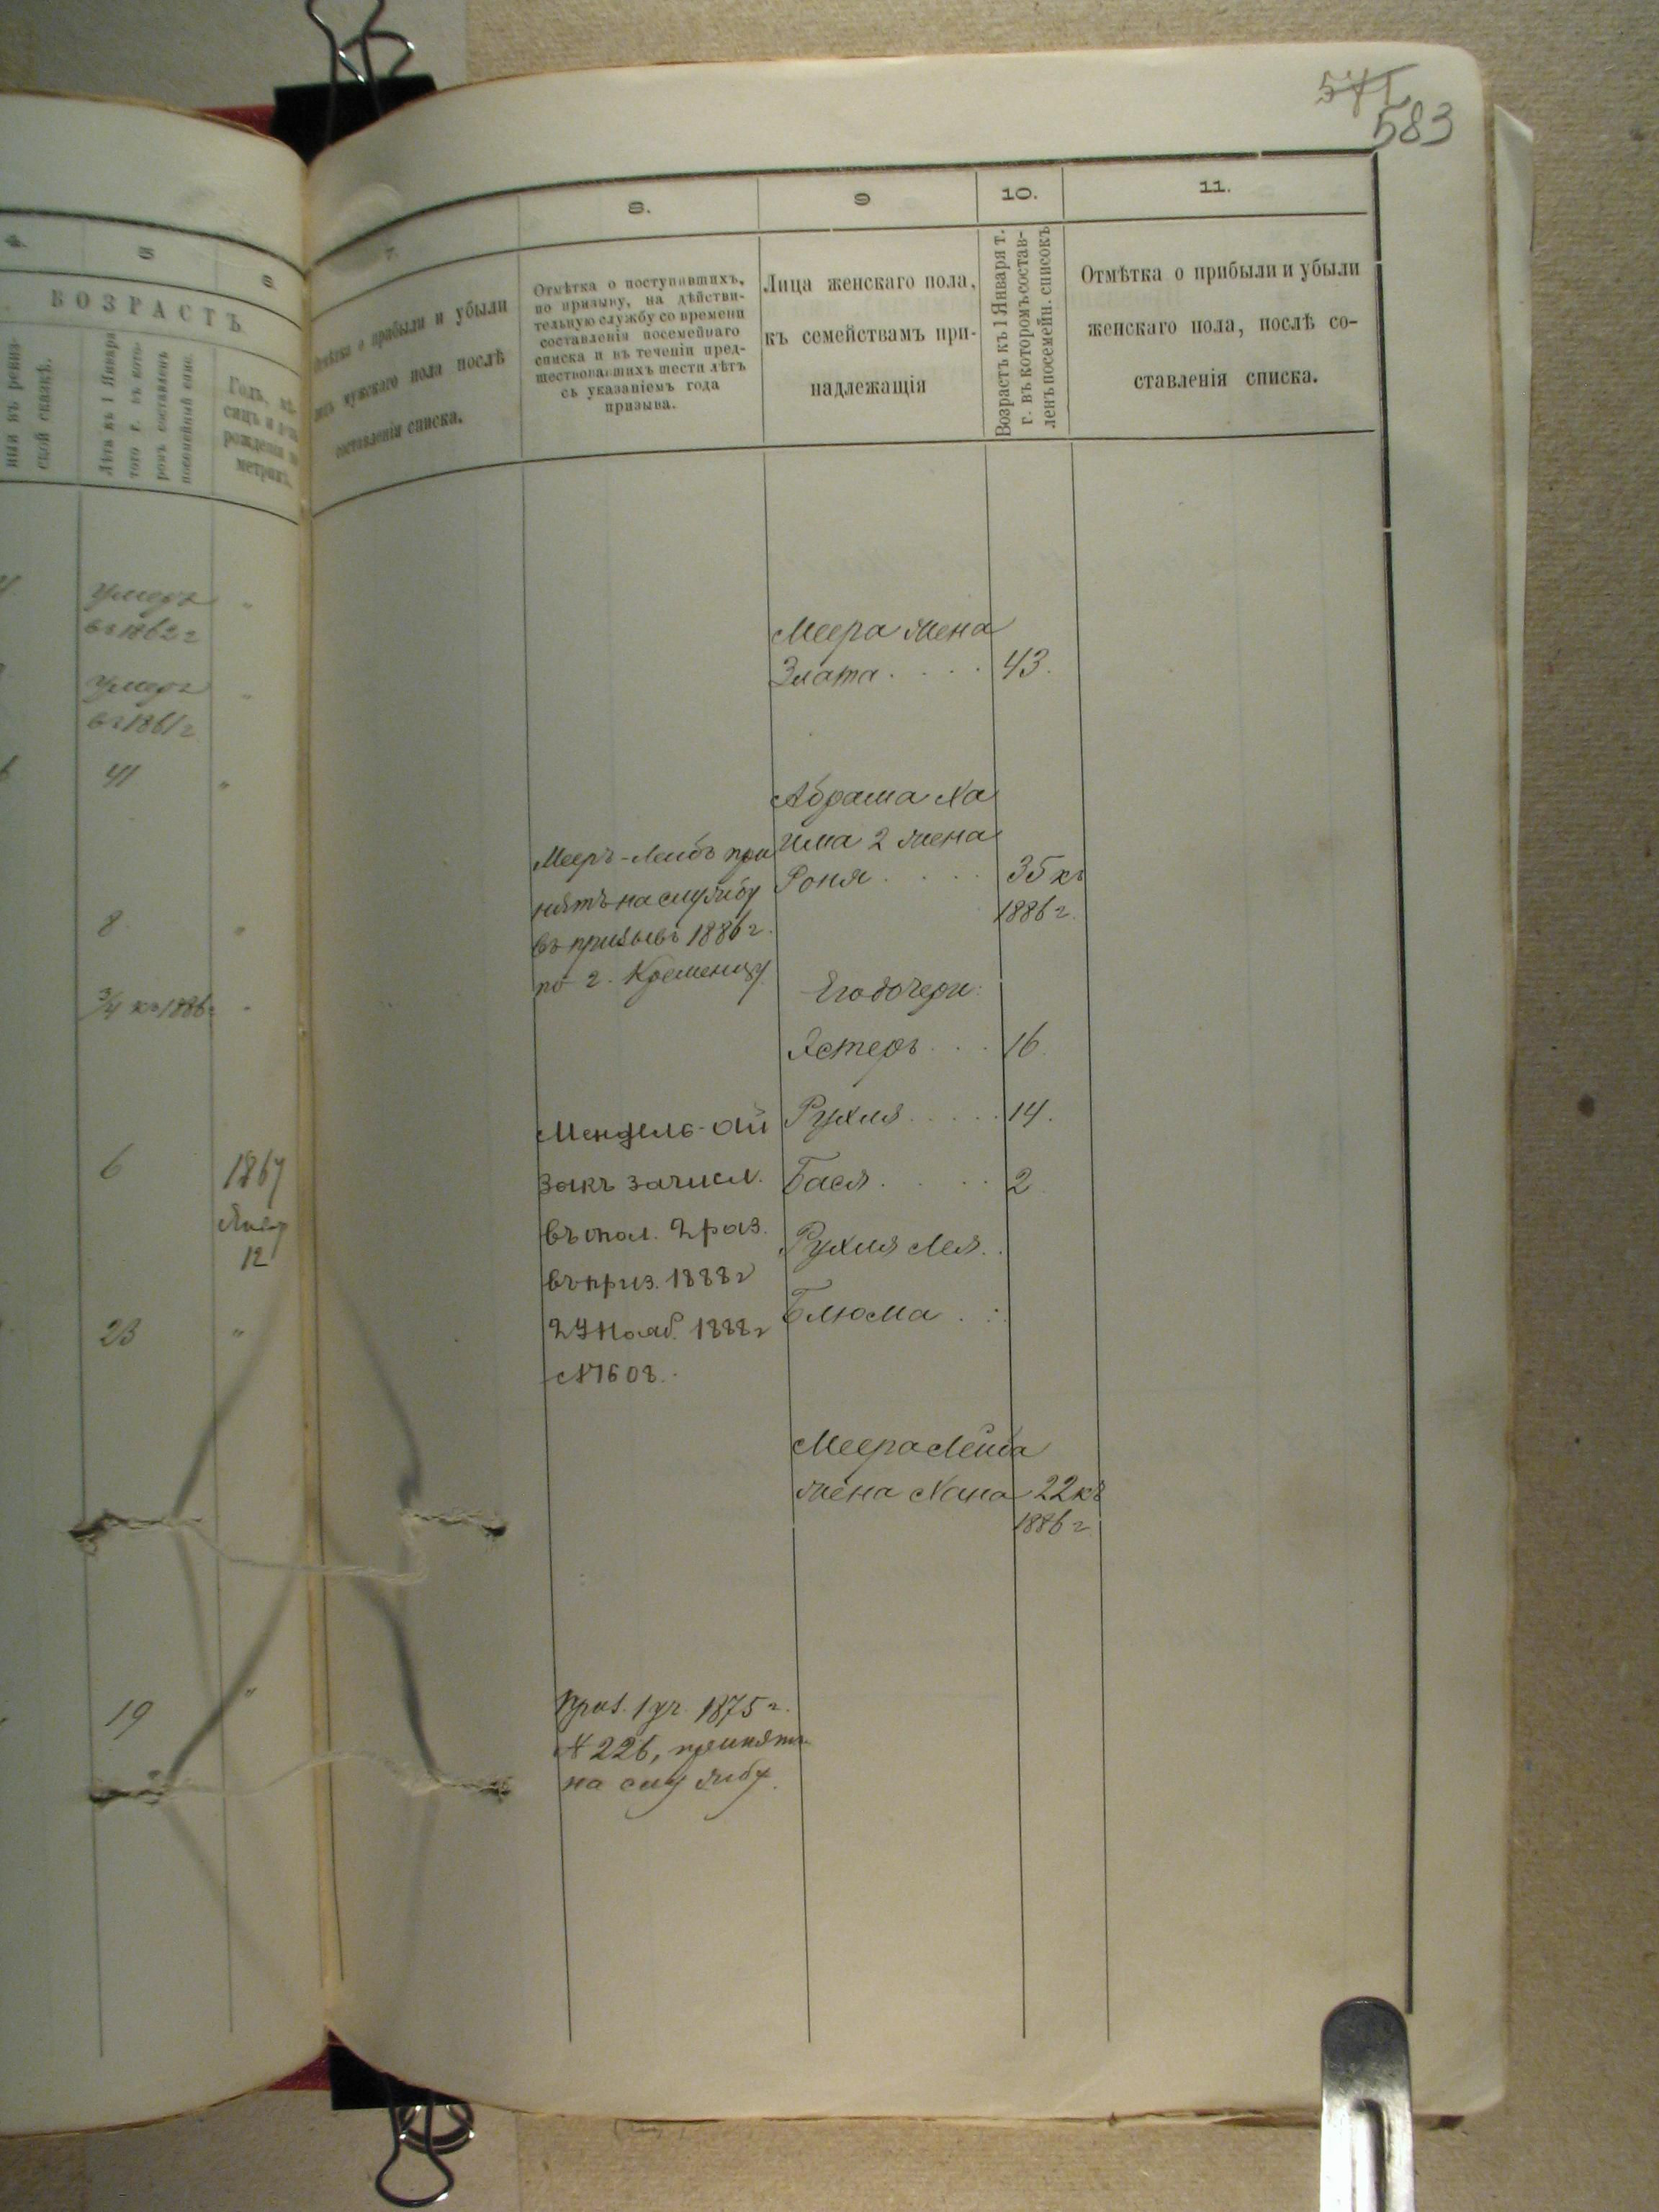 571
583
4.
5
6.
ВОЗРАСТЪ
Лѣта къ 1 Января
того г. въ кото-
ромъ составленъ
посемейный спис.
Годъ, мѣ-
сяцъ и день
рожденія по
метрикѣ.
Умеръ
въ 1862 г
Умеръ
въ 1861 г
41
8
3/4 къ 1886 г
6
1867
Янвр
12
23
19
7.
Отмѣтка о прибыли и убыли
лицъ мужскаго пола послѣ
составленія списка.
8.
Отмѣтка о поступившихъ,
по призыву, на дѣйстви-
тельную службу со времени
составленія посемейнаго
списка и въ теченіи пред-
шествовавшихъ шести лѣтъ
съ указаніемъ года
призыва.
Мееръ-Лейбъ при
нятъ на службу
въ призывъ 1886 г.
по г. Кременцу
Мендель-Ай
закъ зачисл.
въ опол. 2 раз.
въ приз. 1888 г
29 Нояб. 1888 г
№ 1608.
Приз. 1 уч. 1875 г.
№ 226, принятъ
на службу.
9
Лица женскаго пола,
къ семействамъ при-
надлежащія
Меера жена
Злата . . . .
Абрама Ха
има 2 жена
Роня . . . .
Его дочери:
Эстеръ . . .
Рухля . . . .
Бася . . . .
Рухля Лея . .
Блюма . :
Меера Лейба
жена Хана
10.
Возрастъ къ 1 Января т.
г. въ которомъ состав-
ленъ посемейн. списокъ
43.
35 къ
1886 г.
16.
14.
2
22 къ
1886 г.
11.
Отмѣтка о прибыли и убыли
женскаго пола, послѣ со-
ставленія списка.